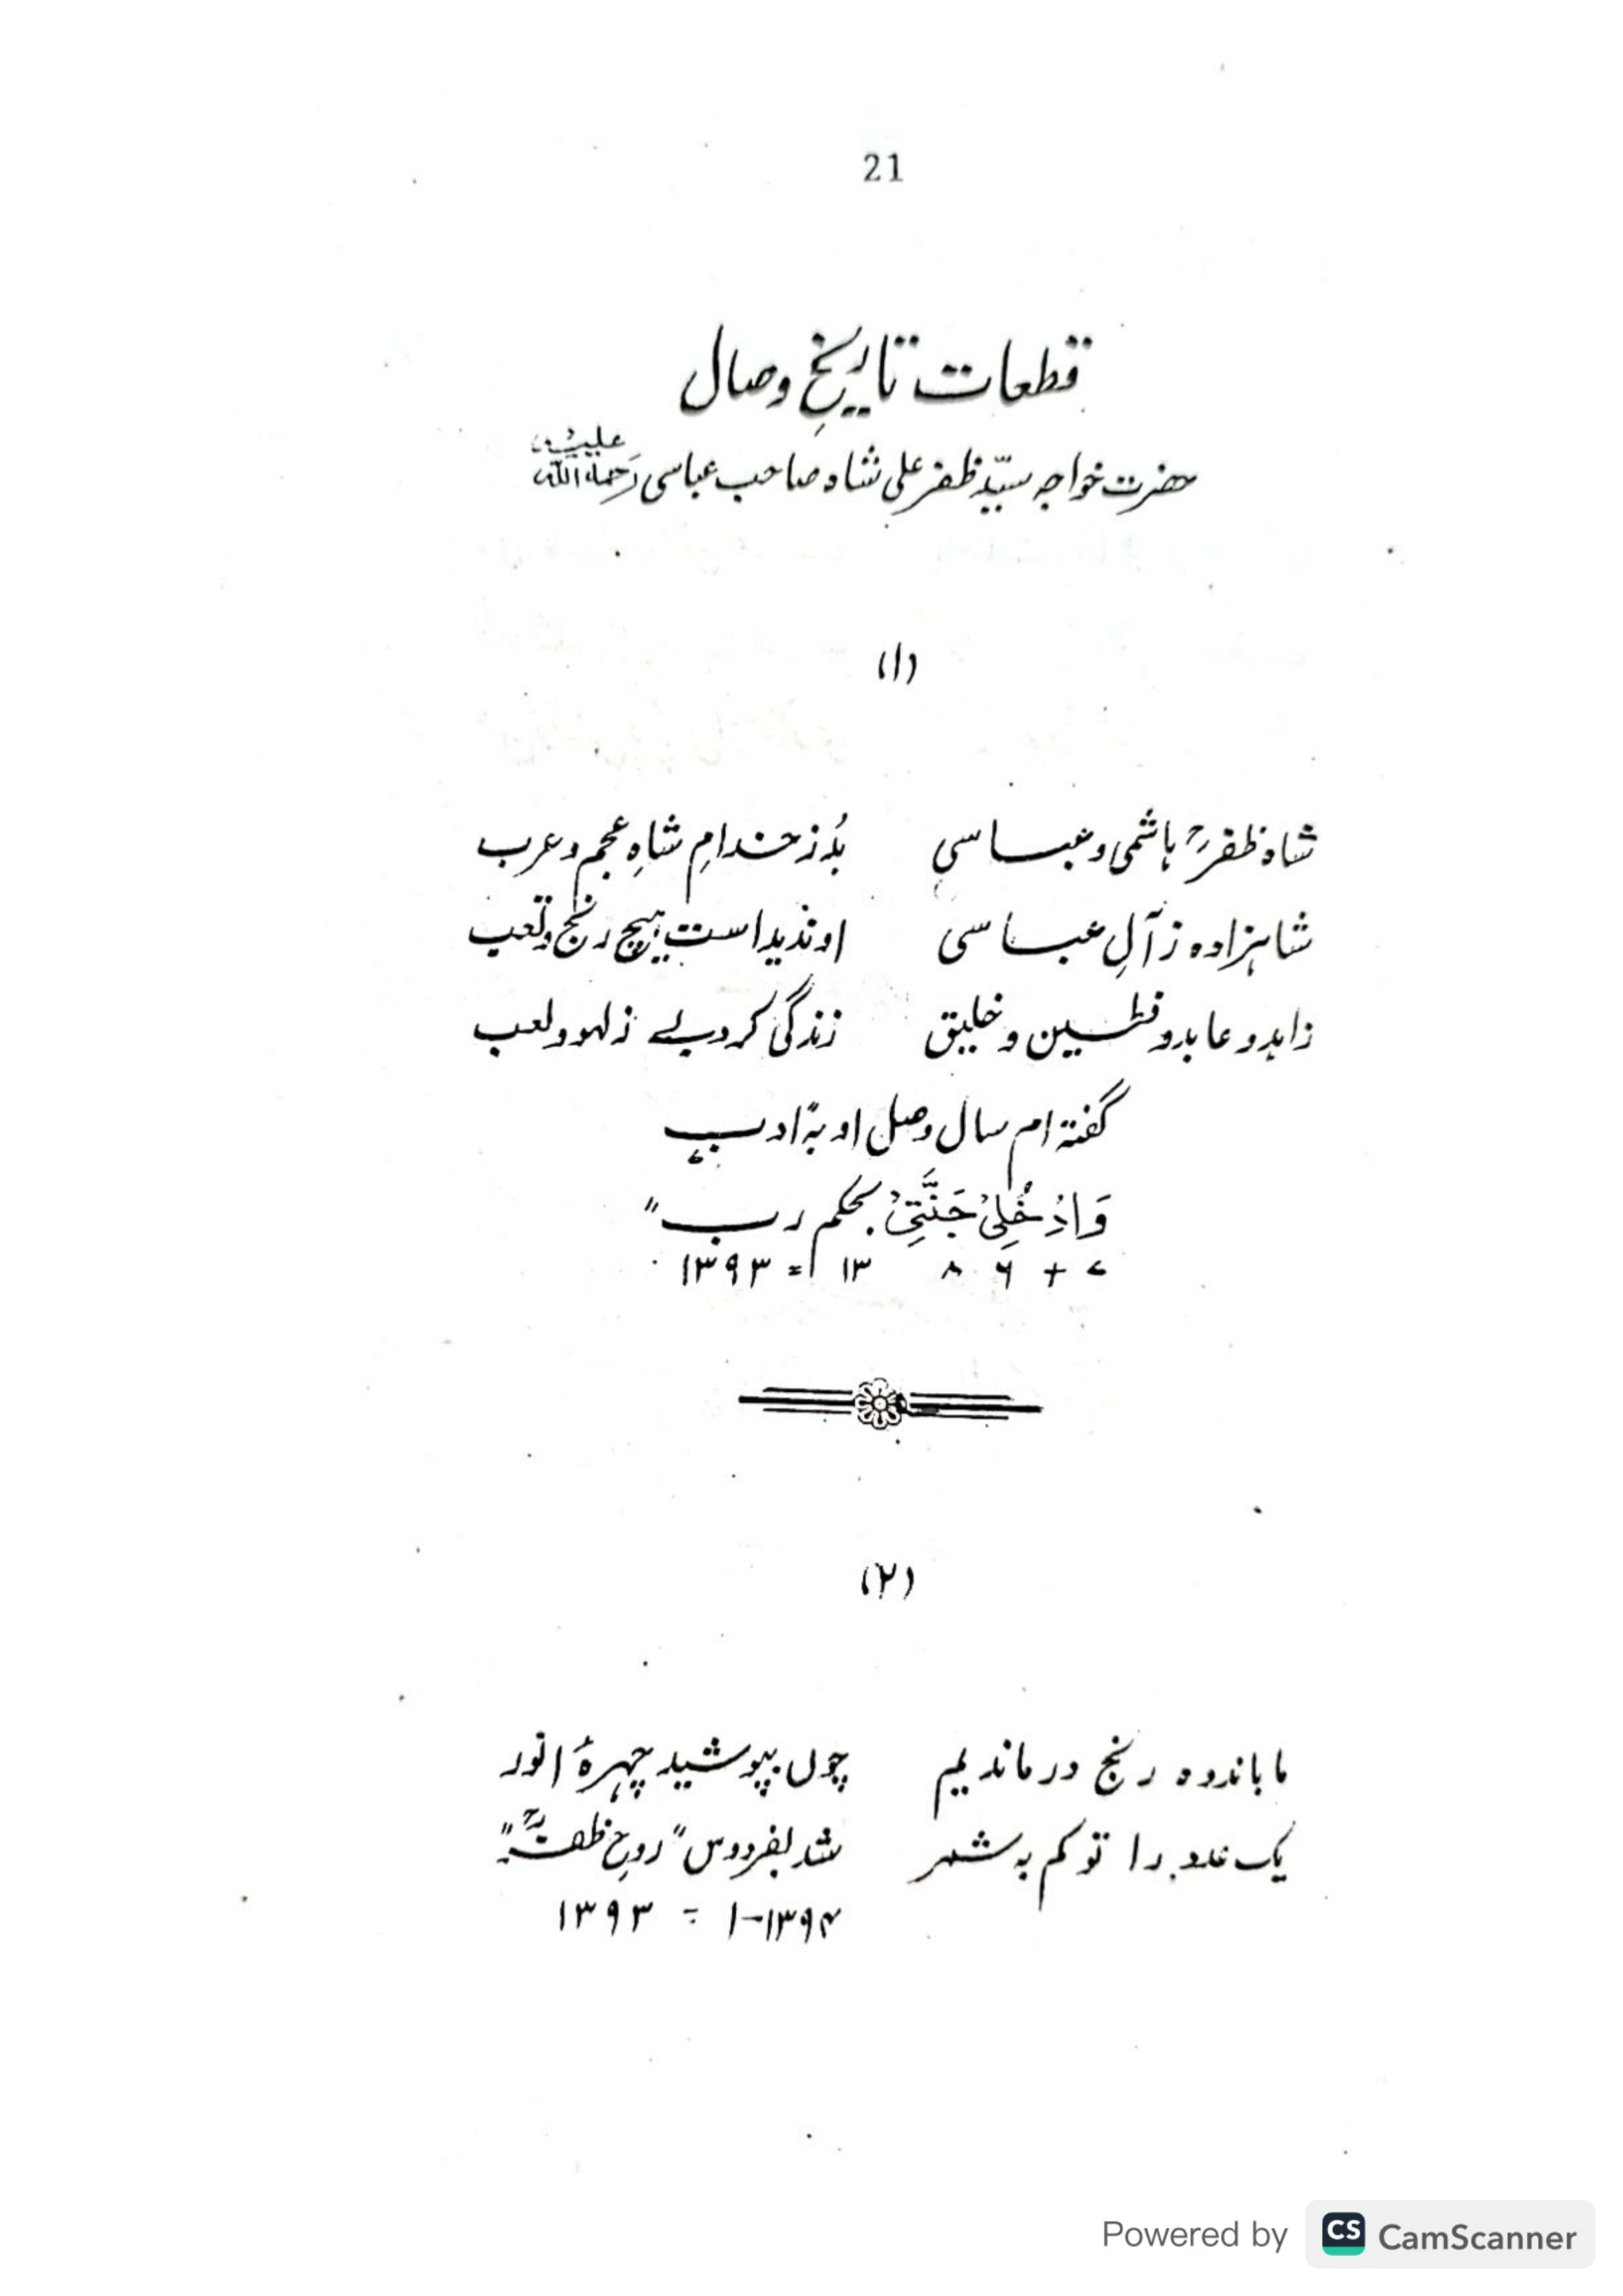 21
قطعات تاریخِ وصال
حضرت خواجہ سیّد ظفر علی شاہ صاحب عباسی رحمۃ اللہ علیہ
(۱)
شاہ ظفرؒ ہاشمی و عباسی بُد ز خدامِ شاہِ عجم و عرب
شاہزادہ ز آلِ عباسی او ندید است ہیچ رنج و تعب
زاہد و عابد و فطین و خلیق زندگی کرد بے ز لہو و لعب
گفتہ ام سال وصل او بہ ادب
وَادْخُلِیْ جَنَّتِیْ بحکم رب"
۷ + ۶ ۸ ۱۳ = ۱۳۹۳
(۲)
ما باندوہ رنج در ماندیم چوں بپوشید چہرۂ انور
یک عدد را تو کم بہ شمر شد بفردوس "روحِ ظفرؒ"
۱۳۹۴-۱ = ۱۳۹۳
Powered by CS CamScanner